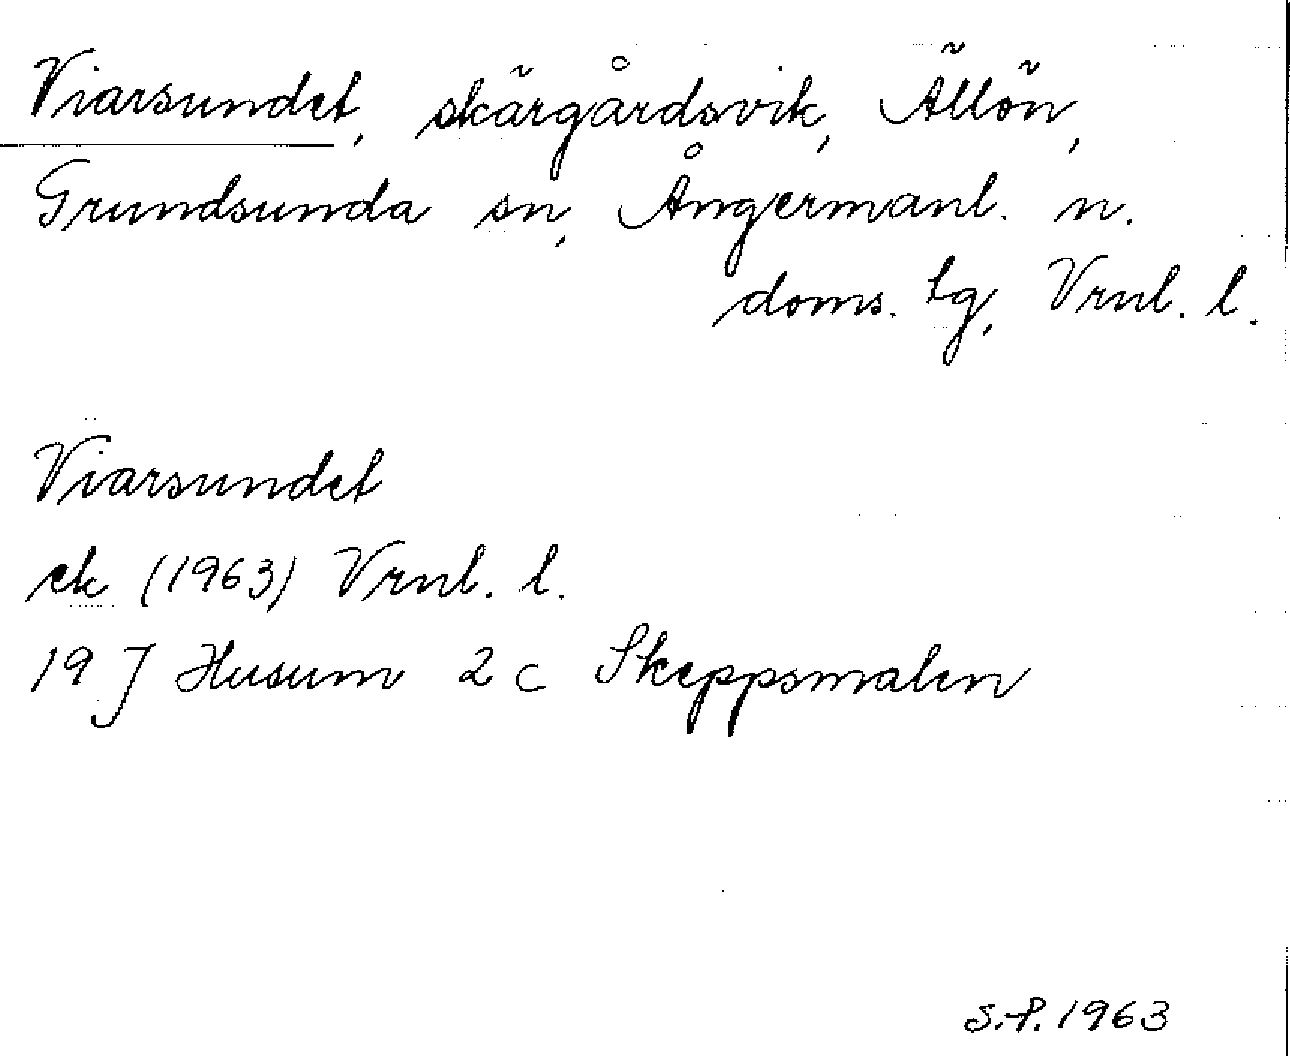 Viarsundet, skärgårdsvik, Ällön,
Grundsunda sn, Ångermanl. n.
doms. lg, Vrnl. l.
Viarsundet
ek (1963) Vrnl. l.
19 J Husum 2 c Skeppsmalen
S.P. 1963